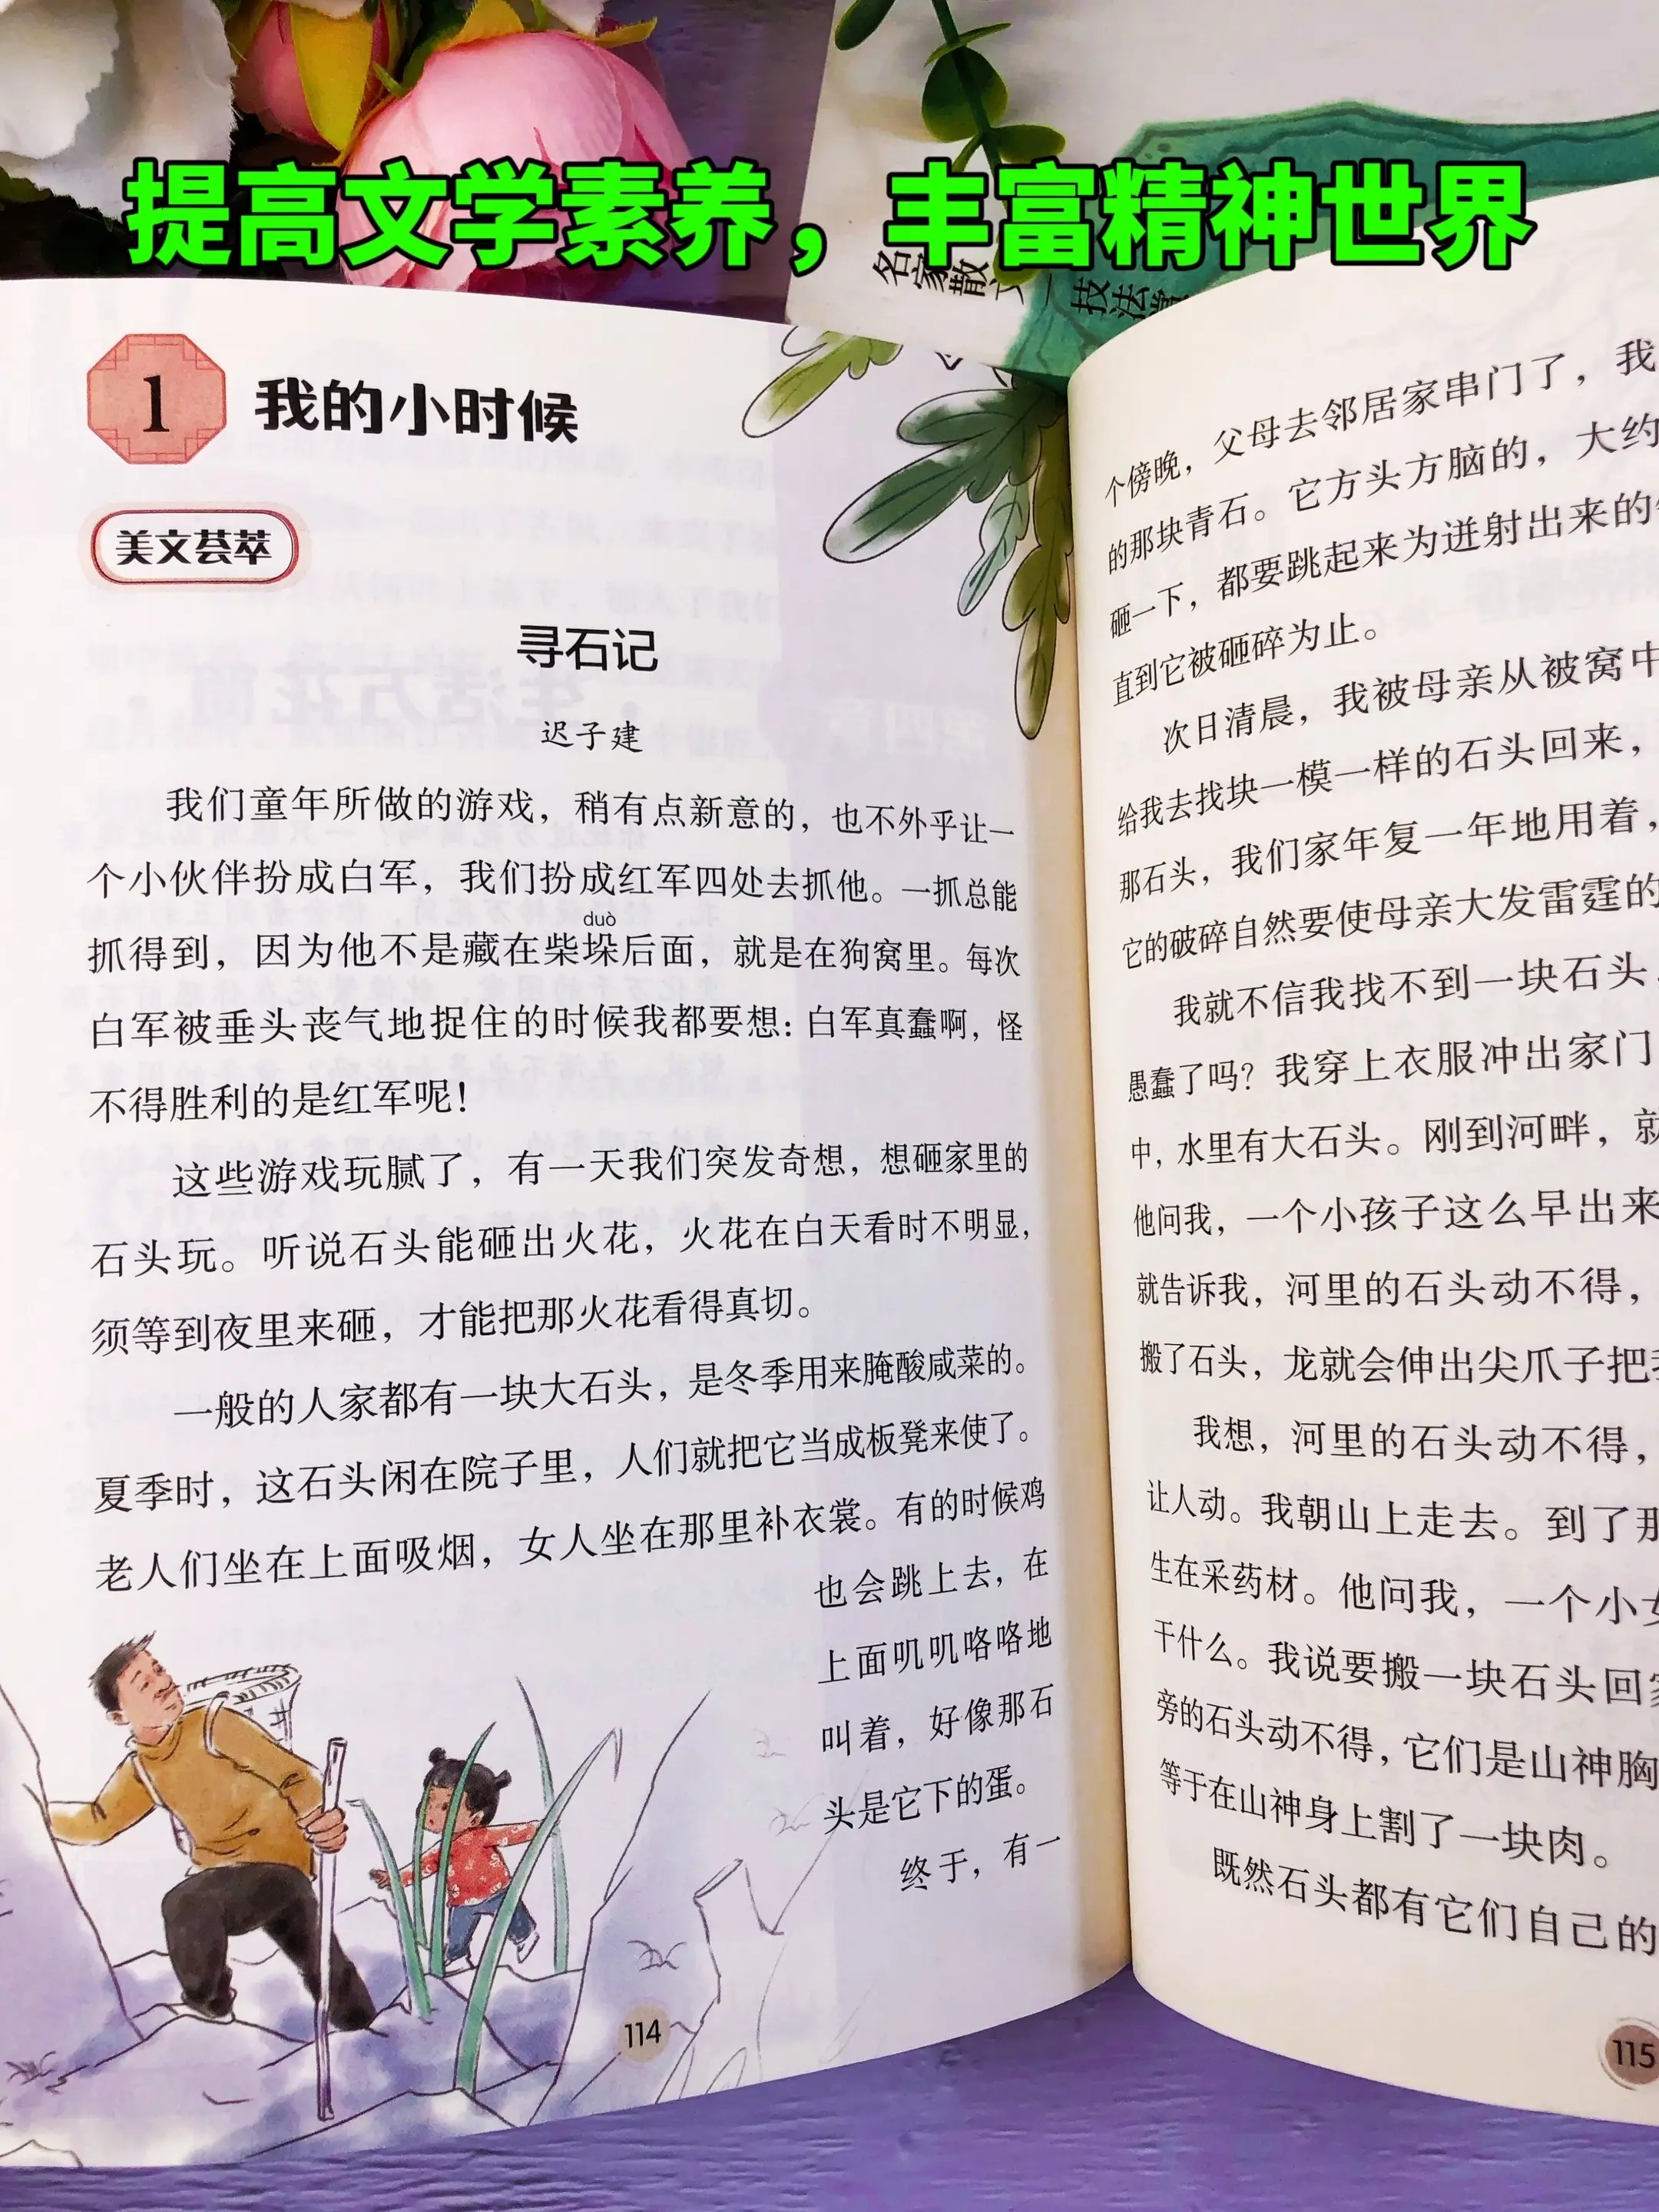 提高文学素养，丰富精神世界
名家散
技法
1 我的小时候
美文荟萃
寻石记
迟子建
我们童年所做的游戏，稍有点新意的，也不外乎让一
个小伙伴扮成白军，我们扮成红军四处去抓他。一抓总能
duò
抓得到，因为他不是藏在柴垛后面，就是在狗窝里。每次
白军被垂头丧气地捉住的时候我都要想：白军真蠢啊，怪
不得胜利的是红军呢！
这些游戏玩腻了，有一天我们突发奇想，想砸家里的
石头玩。听说石头能砸出火花，火花在白天看时不明显，
须等到夜里来砸，才能把那火花看得真切。
一般的人家都有一块大石头，是冬季用来腌酸咸菜的。
夏季时，这石头闲在院子里，人们就把它当成板凳来使了。
老人们坐在上面吸烟，女人坐在那里补衣裳。有的时候鸡
也会跳上去，在
上面叽叽咯咯地
叫着，好像那石
头是它下的蛋。
终于，有一
114
个傍晚，父母去邻居家串门了，我
的那块青石。它方头方脑的，大约
砸一下，都要跳起来为迸射出来的
直到它被砸碎为止。
次日清晨，我被母亲从被窝中
给我去找块一模一样的石头回来，
那石头，我们家年复一年地用着，
它的破碎自然要使母亲大发雷霆的
我就不信我找不到一块石头
愚蠢了吗？我穿上衣服冲出家门
中，水里有大石头。刚到河畔，就
他问我，一个小孩子这么早出来
就告诉我，河里的石头动不得，
搬了石头，龙就会伸出尖爪子把我
我想，河里的石头动不得，
让人动。我朝山上走去。到了那
生在采药材。他问我，一个小女
干什么。我说要搬一块石头回家
旁的石头动不得，它们是山神胸
等于在山神身上割了一块肉。
既然石头都有它们自己的
115